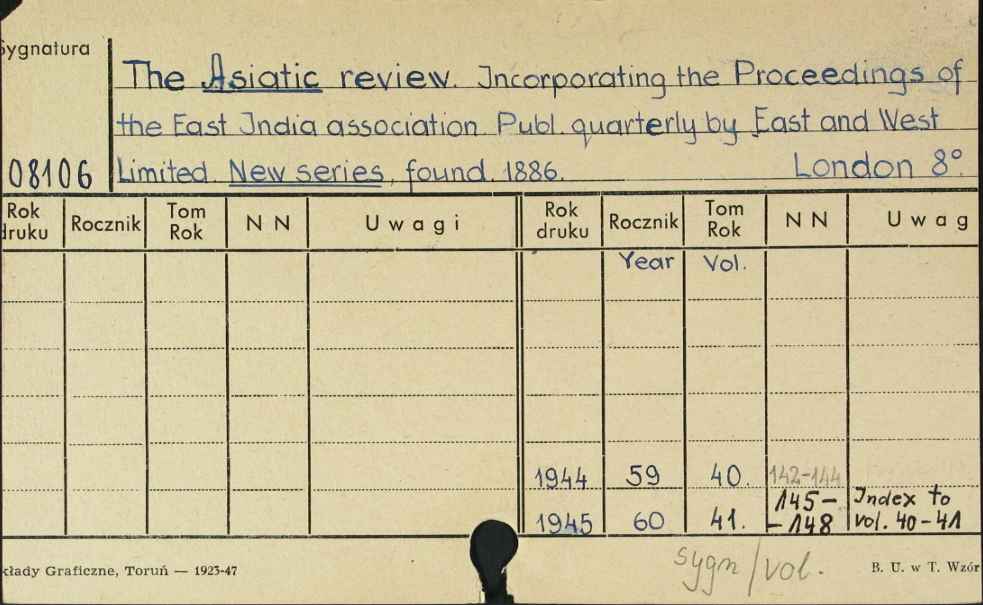 Sygnatura
The Asiatic review. Incorporating the Proceedings of
the East India association Publ. quarterly by East and West
08106 Limited. New series, found. 1886. London 8°.
Rok druku Rocznik Tom Rok N N Uwagi Rok druku Rocznik Tom Rok N N Uwag
Year Vol.
1944 59 40. 142-144
1945 60 41. 145-
-148 Index to
vol. 40-41
kłady Graficzne, Toruń — 1923-47
sygn/vol.
B. U. w T. Wzór